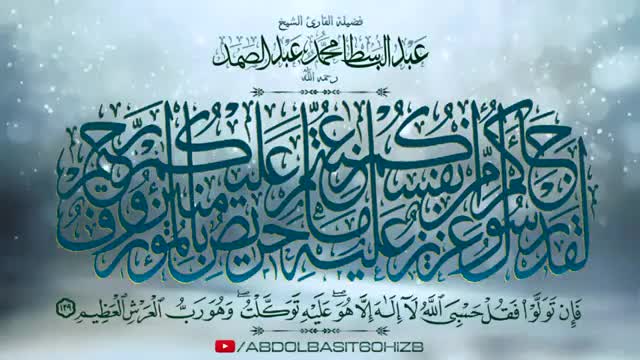 فضيلة القارئ الشيخ
عبد الباسط محمد عبد الصمد
رحمه الله
لقد جاءكم رسول من أنفسكم عزيز عليه ما عنتم حريص عليكم بالمؤمنين رءوف رحيم
فَإِن تَوَلَّوْا فَقُلْ حَسْبِيَ اللَّهُ لَا إِلَٰهَ إِلَّا هُوَ ۖ عَلَيْهِ تَوَكَّلْتُ ۖ وَهُوَ رَبُّ الْعَرْشِ الْعَظِيمِ ١٢٩
/ABDOLBASIT60HIZB